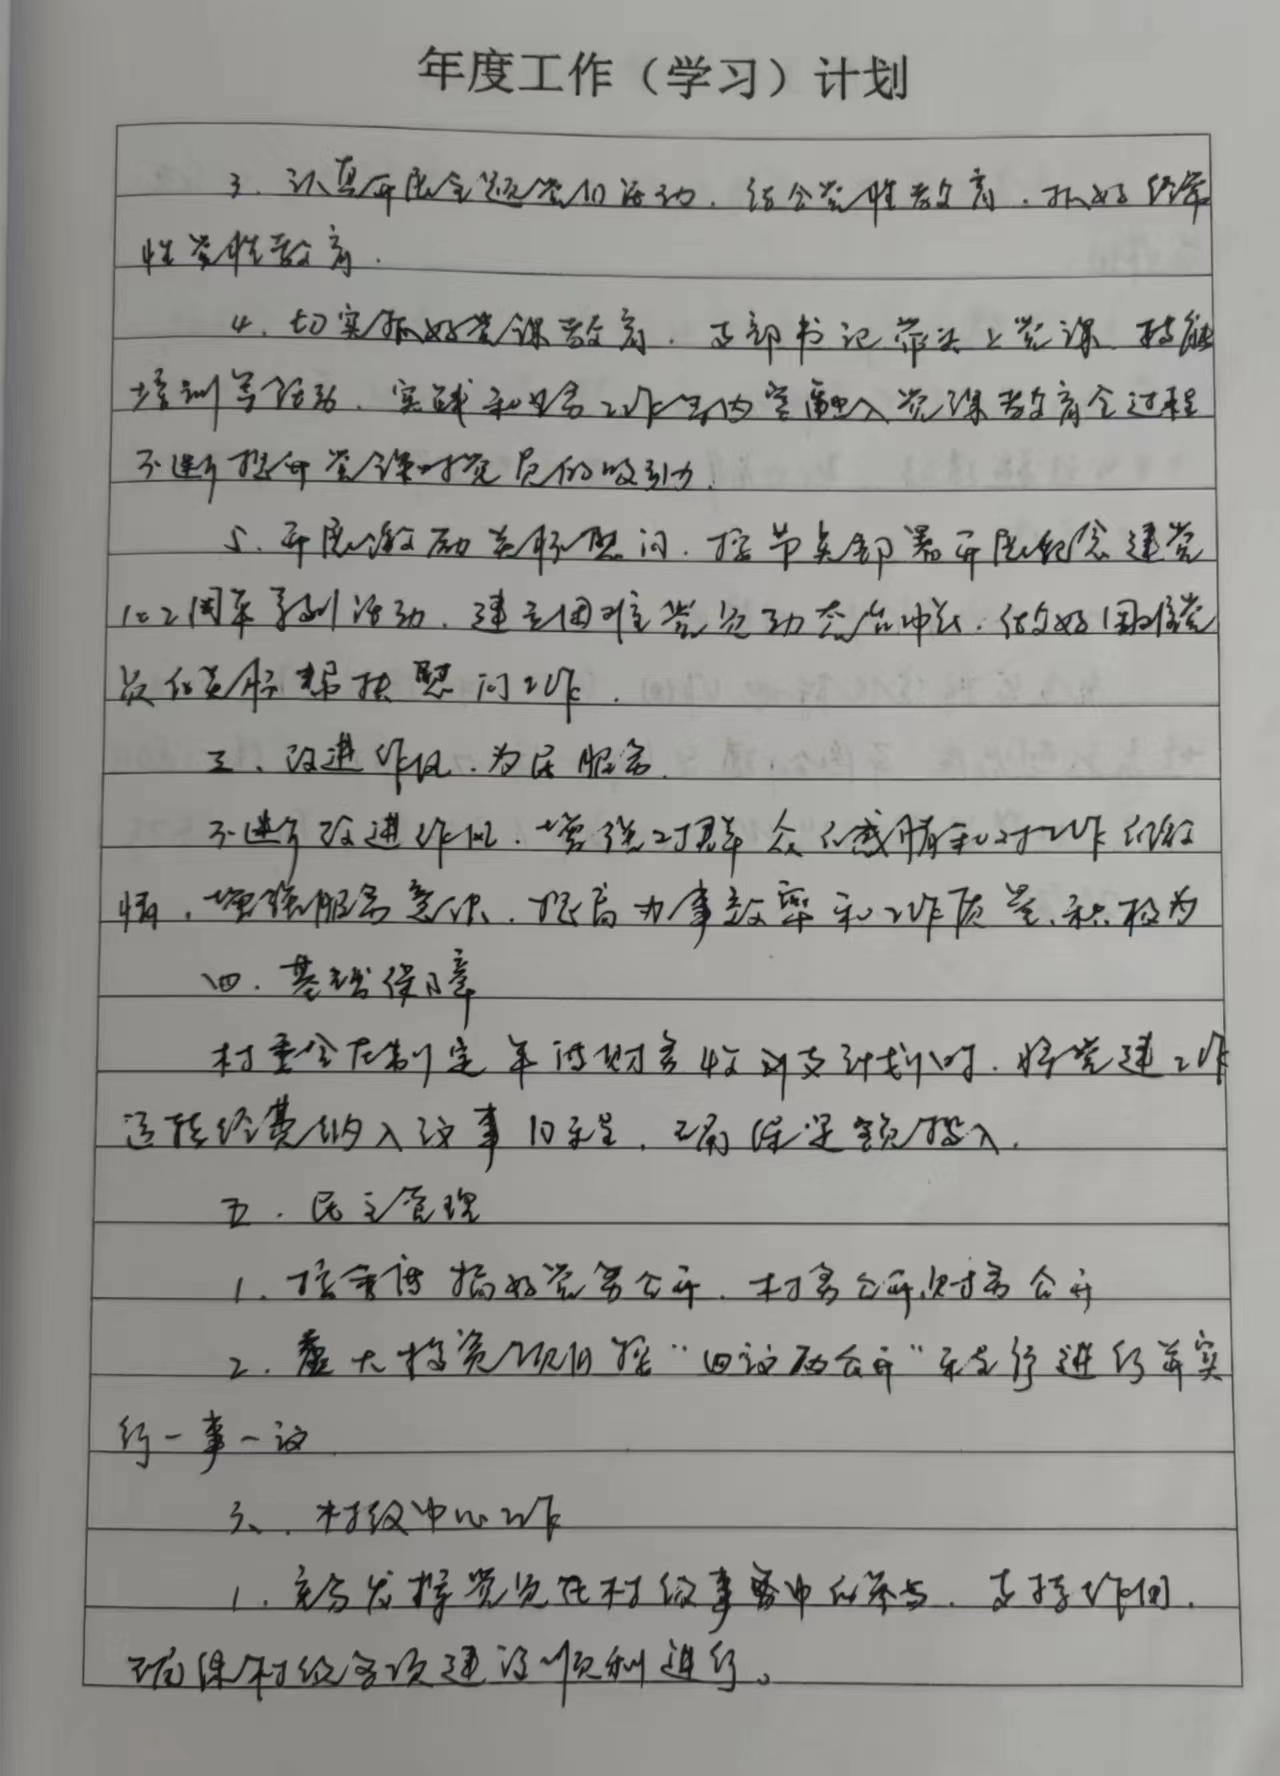 年度工作（学习）计划
3．认真开展主题党日活动．结合党性教育．抓好经常
性党性教育．
4．切实抓好党课教育．支部书记带头上党课．技能
培训等活动．实践和业务工作等内容融入党课教育全过程
不断提升党课对党员的吸引力．
5．开展激励关怀慰问．按节点部署开展纪念建党
102周年系列活动．建立困难党员动态台帐．做好困难党
员的关怀帮扶慰问工作．
三、改进作风．为民服务．
不断改进作风．增强对群众的感情和对工作的激
情．增强服务意识．提高办事效率和工作质量．积极为
四．基础保障
村委会在制定年度财务收支计划时．将党建工作
运转经费纳入议事日程．确保足额投入．
五．民主管理
1．按季度搞好党务公开．村务公开，财务公开
2．重大投资项目按“四议两公开”程序进行并实
行一事一议
六．村级中心工作
1．充分发挥党员在村级事务中的参与．支持作用．
确保村级各项建设顺利进行。